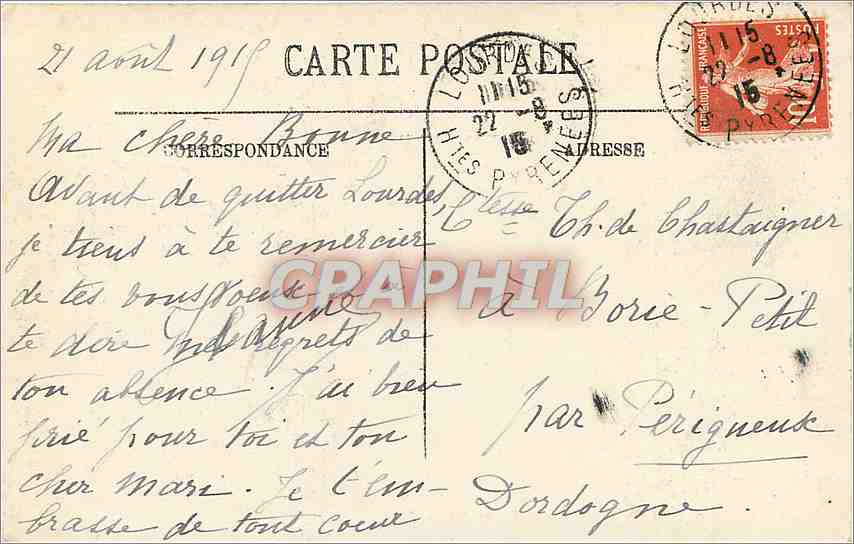 21 août 1915
CARTE POSTALE
LOURDES
11 15
22 -8
15
Htes PYRENEES
LOURDES
11 15
22 -8
15
Htes PYRENEES
REPUBLIQUE FRANÇAISE
POSTES
10
CORRESPONDANCE
ADRESSE
Ma chère Bonne
Avant de quitter Lourdes,
je tiens à te remercier
de tes bons voeux et
te dire mes regrets de
ton absence. J'ai bien
prié pour toi et ton
cher mari. Je t'em-
brasse de tout coeur
Ctesse Th. de Chastaigner
à Borie-Petit
par Périgueux
Dordogne.
CPAPHIL